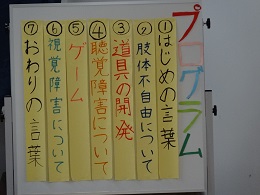 プログラム
①はじめの言葉
②肢体不自由について
③道具の開発
④聴覚障害について
⑤ゲーム
⑥視覚障害について
⑦おわりの言葉